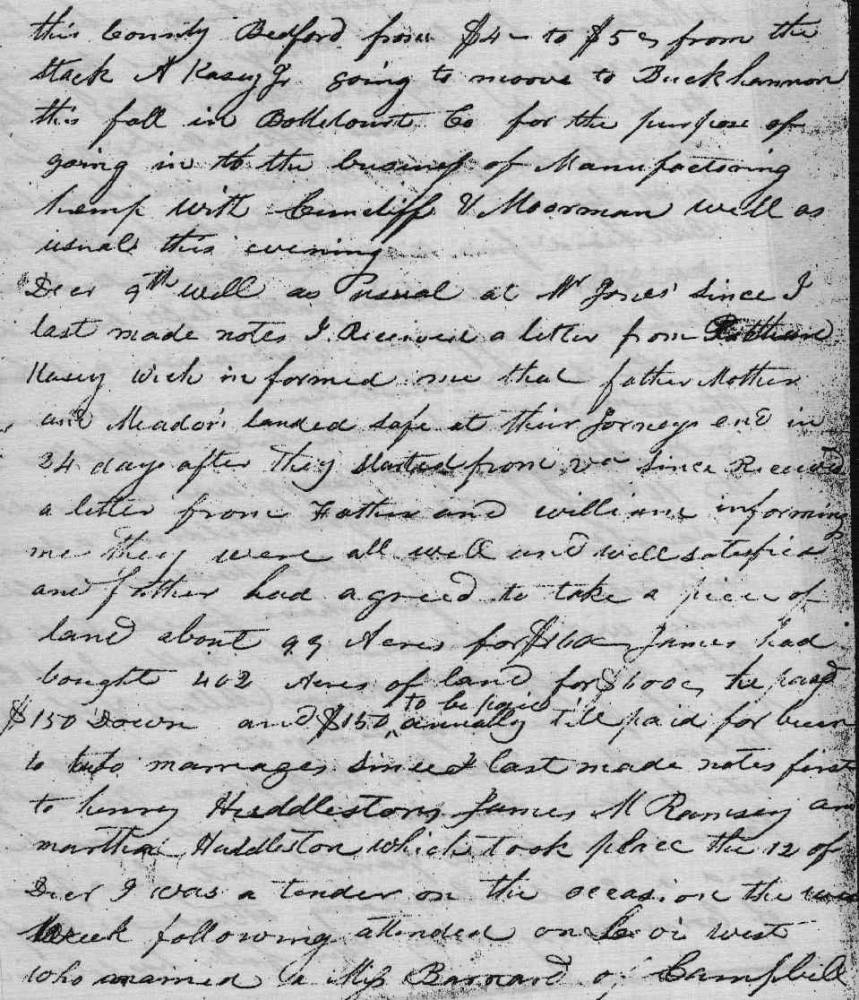 this County Bedford from $4 – to $5 from the
stack A Kasey Jr going to moove to Buckhannon
this fall in Bottetourt Co for the purpose of
going in to the business of Manufactoring
hemp with Cundiff & Moorman well as
usual this evening
Decr 9th well as usual at Mr Jones' since I
last made notes I Received a letter from
Kasey wich informed me that father Mother
and Meador landed safe at their Jorneys end in
24 days after they started from Va since Received
a letter from Father and william informing
me they were all well and well satesfied
and father had agreed to take a piece of
land about 99 Acres for James had
bought 402 Acres of land for $600 he paid
$150 Down and $150 to be paid anually till paid for been
to two marrages since I last made notes first
to henry Huddlestons James M Ramsey an
martha Huddleston which took place the 12 of
Decr I was a tender on the occasion the
week following attended on Levi west
who married a Miss Barnard of Campbell